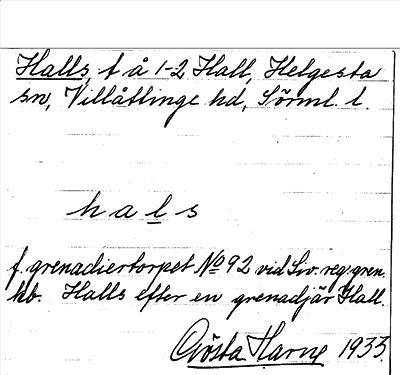 Halls, t å 1-2 Hall, Helgesta
sn, Villåttinge hd, Sörml. l.
hals
f. grenadiertorpet No 92 vid Liv. reg. gren.
kb. Halls efter en grenadjär Hall.
Gösta Harne 1933.